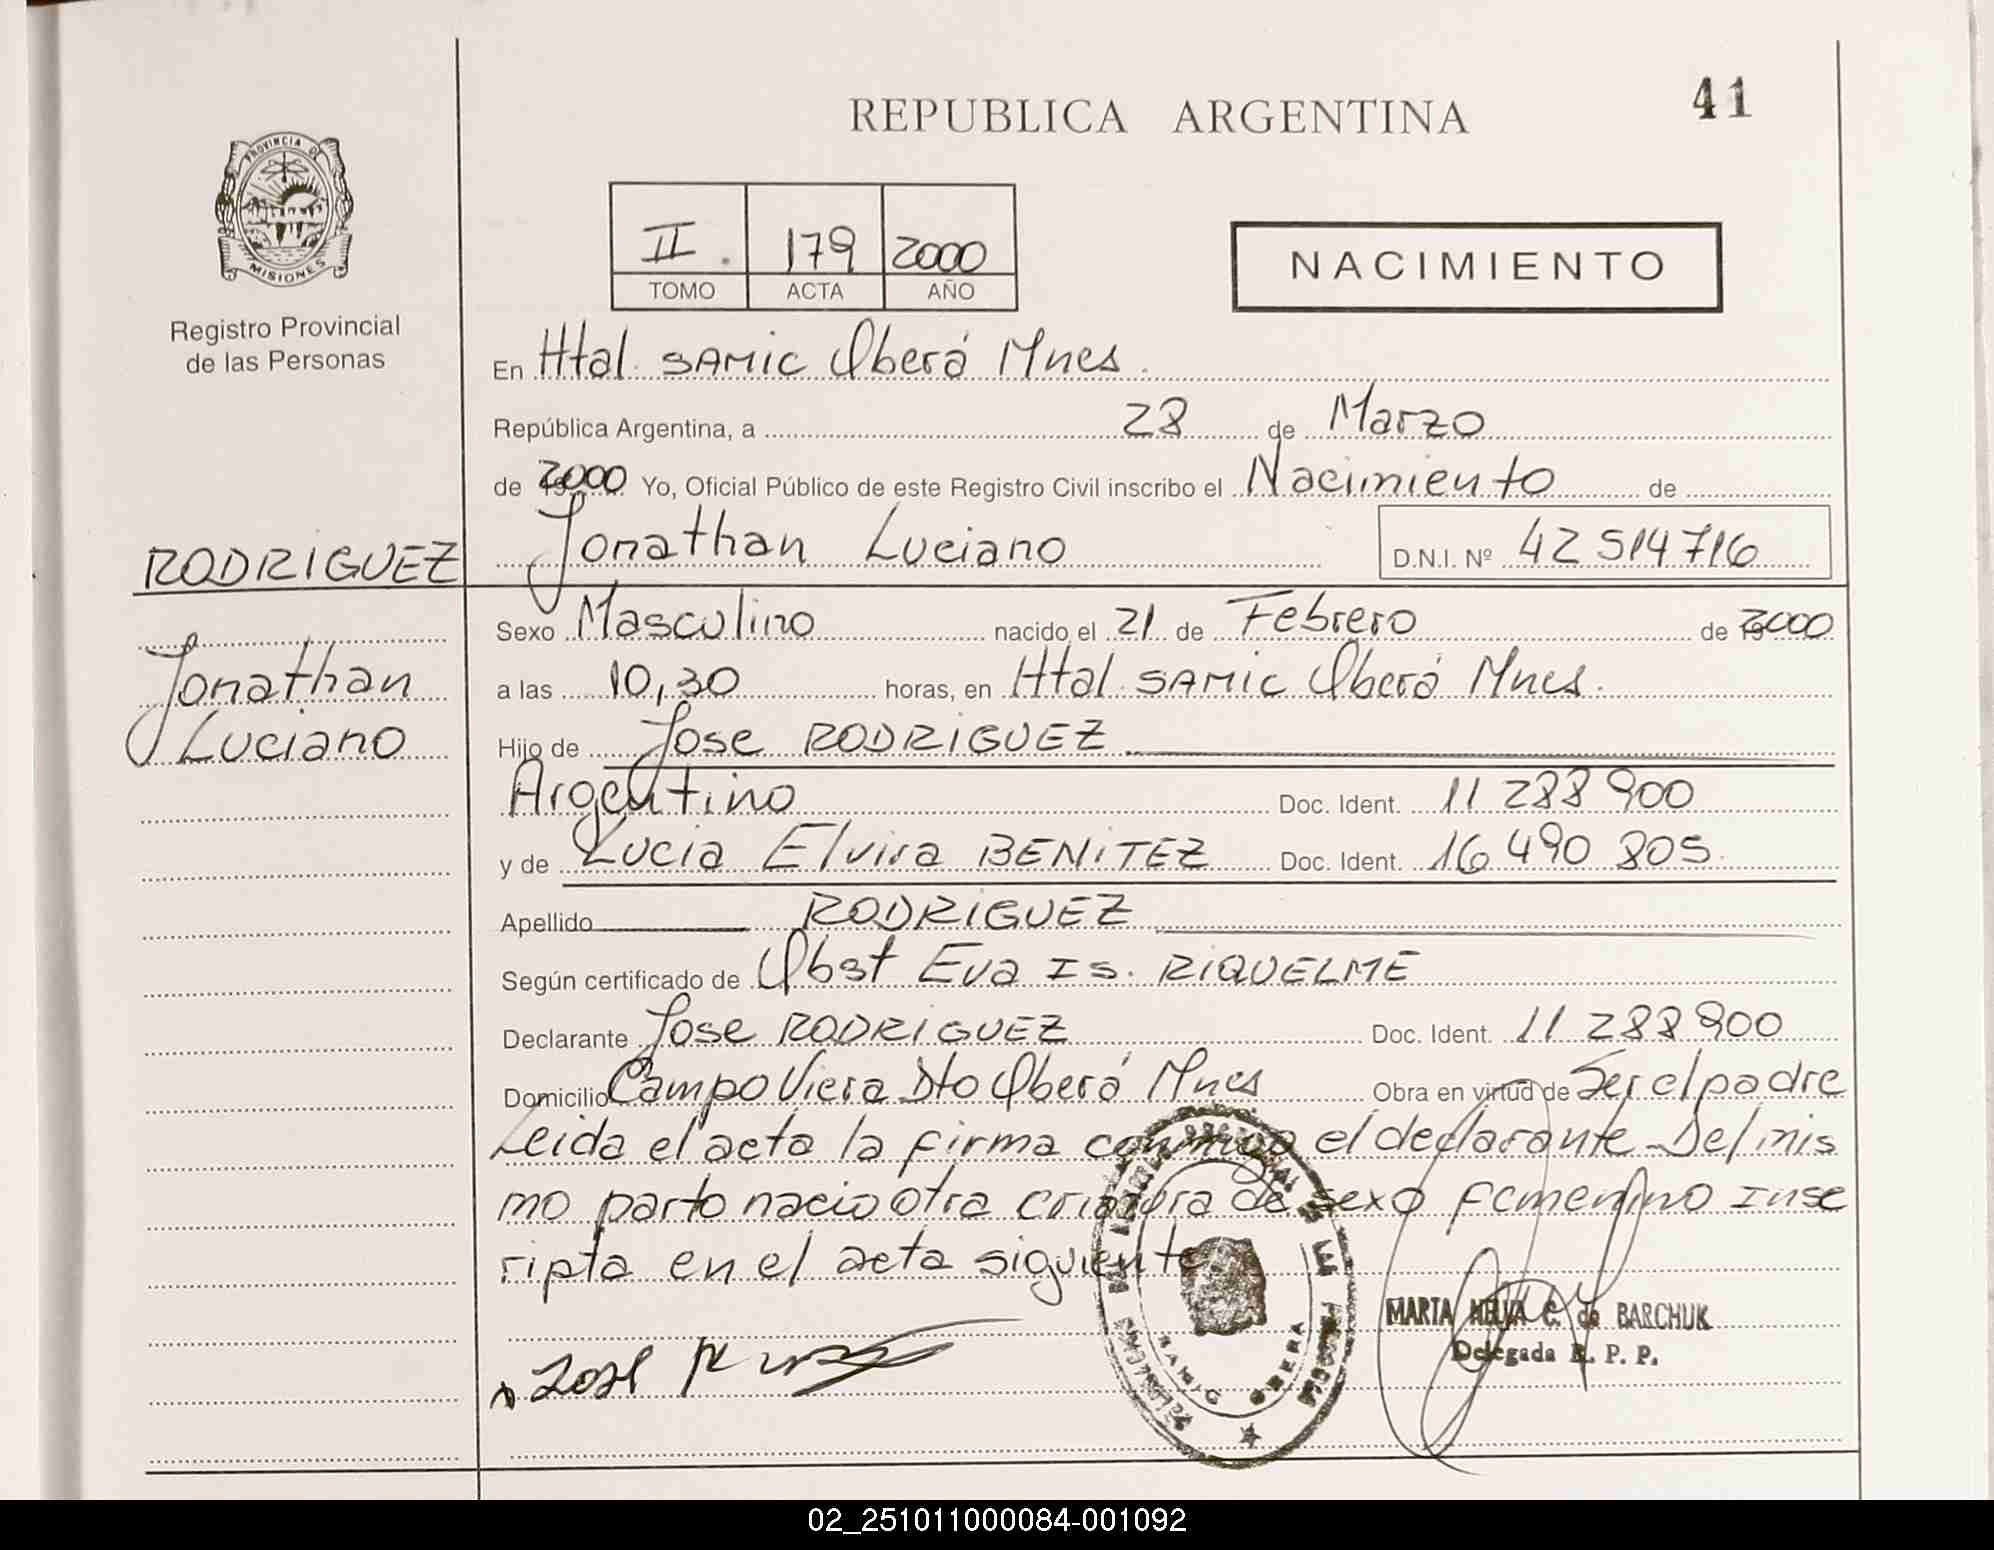 41
REPUBLICA ARGENTINA
PROVINCIA DE
MISIONES
Registro Provincial
de las Personas
II. 179 2000
TOMO ACTA AÑO
NACIMIENTO
En Htal. SAMIC Oberá Mnes.
República Argentina, a 28 de Marzo
de 2000 Yo, Oficial Público de este Registro Civil inscribo el Nacimiento de
Jonathan Luciano D.N.I. Nº 42 514 716
RODRIGUEZ
Jonathan
Luciano
Sexo Masculino nacido el 21 de Febrero de 2000
a las 10,30 horas, en Htal. SAMIC Oberá Mnes.
Hijo de Jose RODRIGUEZ
Argentino Doc. Ident. 11 288 900
y de Lucia Elvira BENITEZ Doc. Ident. 16 490 805.
Apellido RODRIGUEZ
Según certificado de Obst Eva Is. RIQUELME
Declarante Jose RODRIGUEZ Doc. Ident. 11 288 900
Domicilio Campo Viera Dto Oberá Mnes Obra en virtud de Ser el padre
Leida el acta la firma conmigo el declarante - Del mis
mo parto nacio otra criatura de sexo femenino Inse
ripta en el acta siguiente
MARTA NELVA C. de BARCHUK
Delegada R. P. P.
SAMIC OBERA
02_251011000084-001092